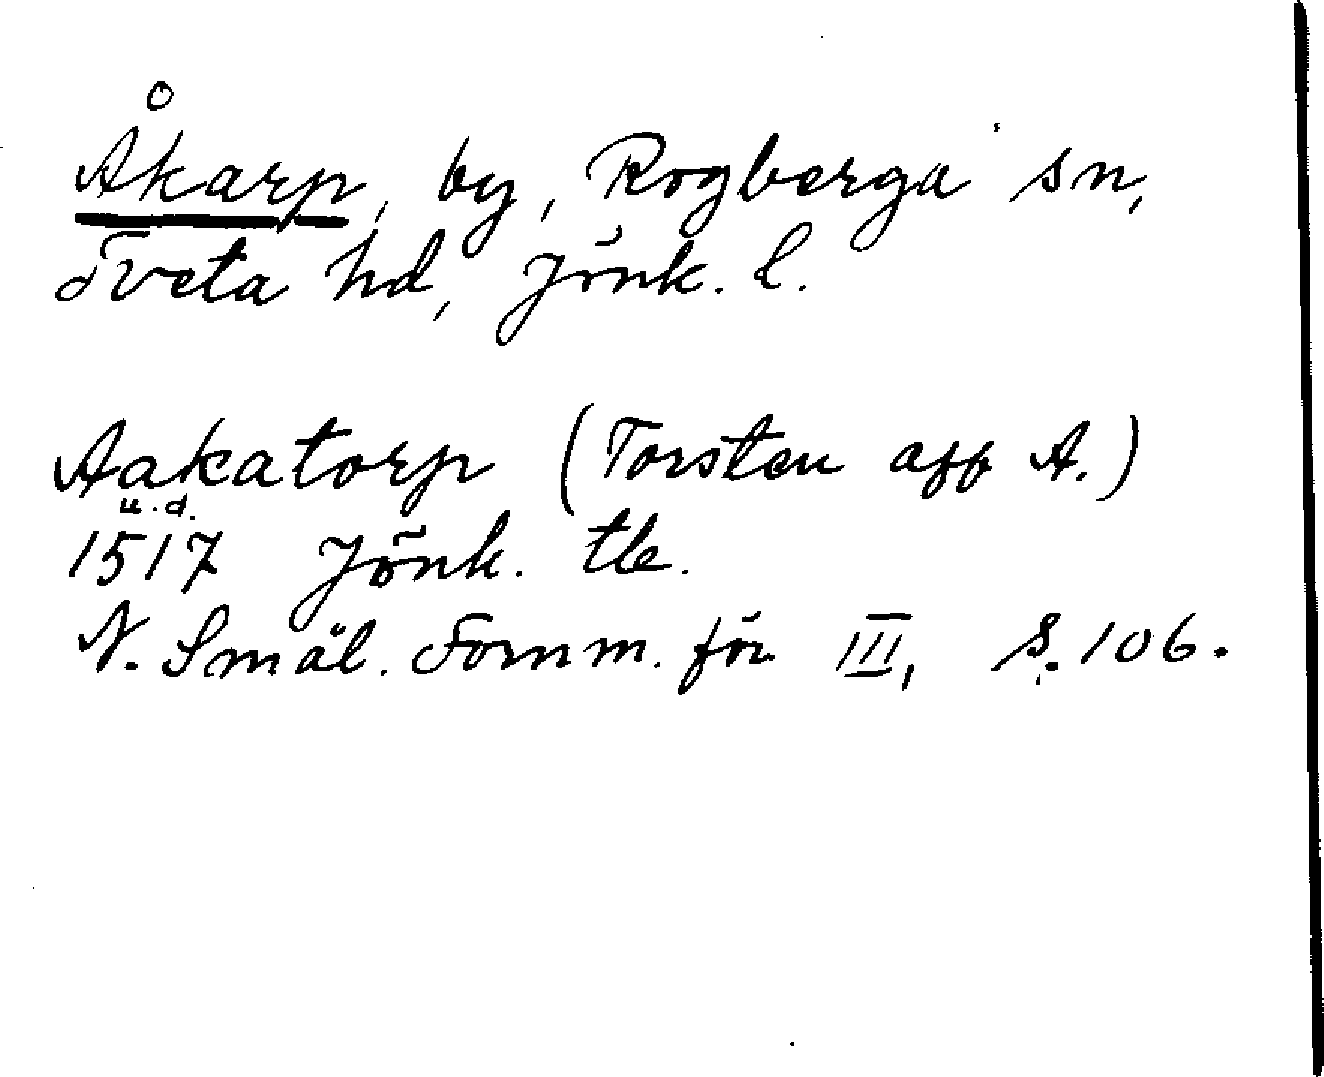 Åkarp, by, Rogberga sn,
Tveta hd, Jönk. l.
Aakatorp (Torsten aff A.)
u.d.
1517 Jönk. tb.
N. Smål. Fornm. för III, s. 106.